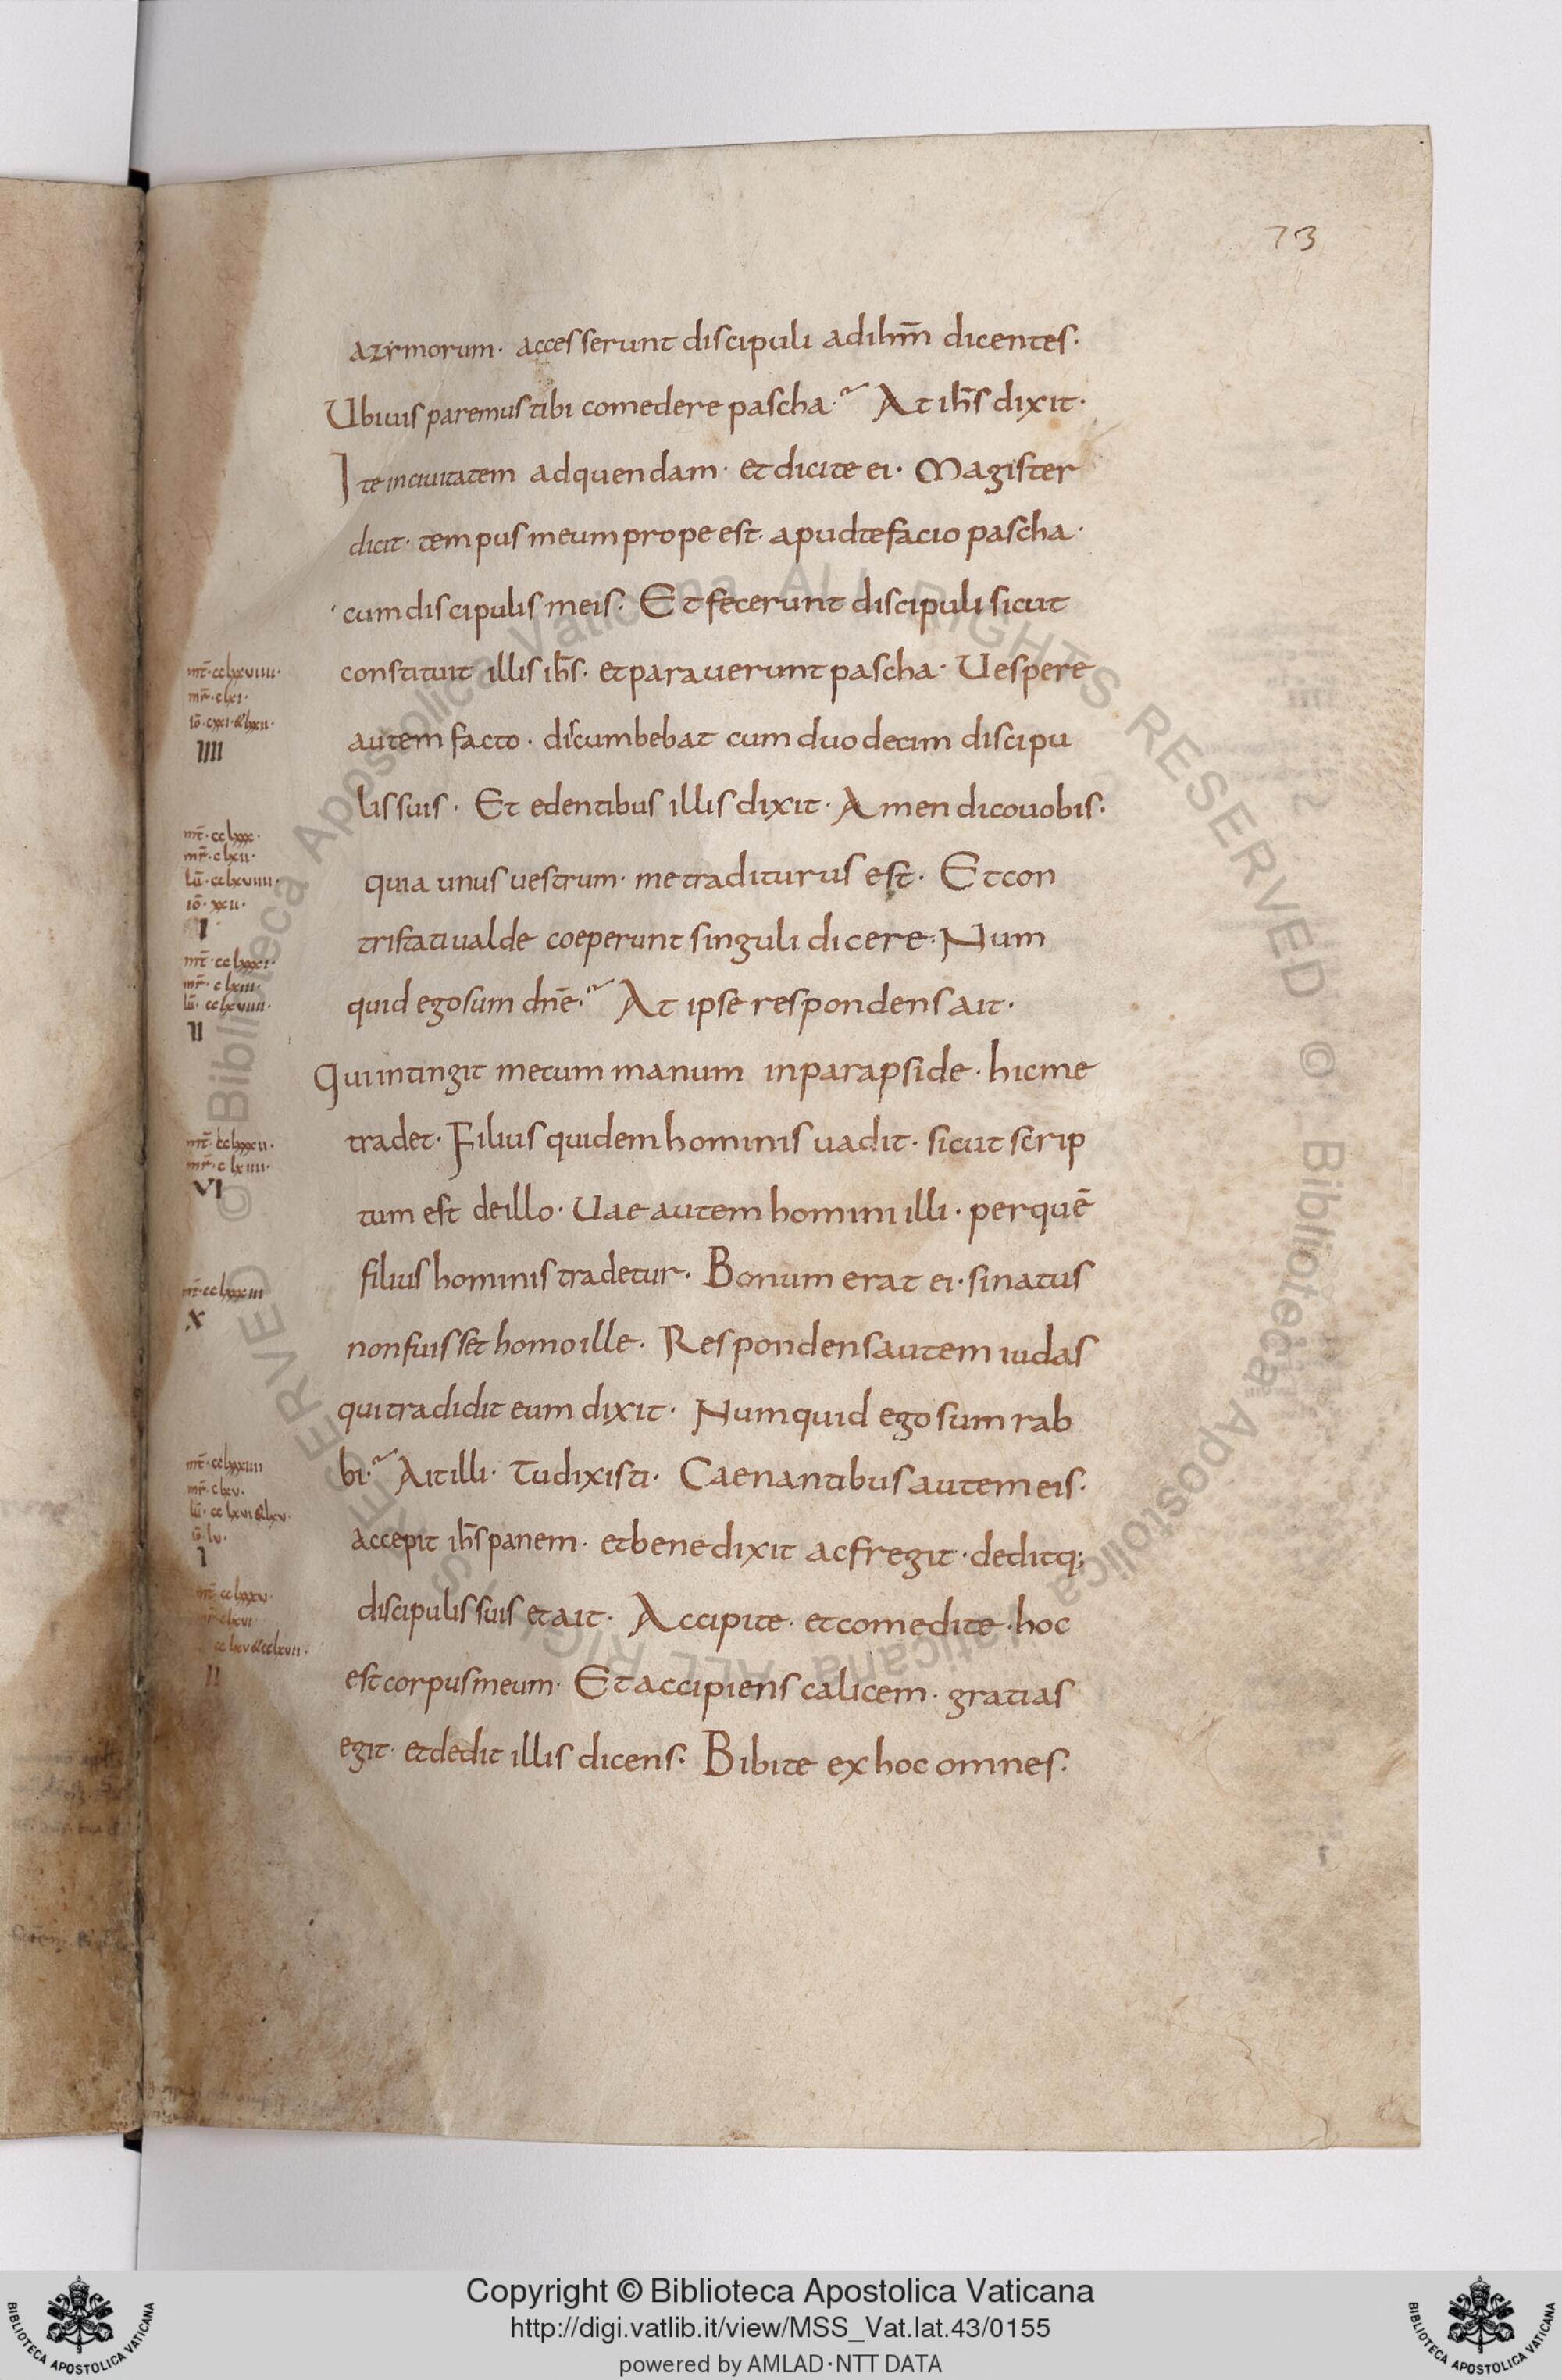 73
azymorum· accesserunt discipuli ad ihm̄ dicentes·
Ubi uis paremus tibi comedere pascha·? At ih̄s dixit·
Ite inciuitatem adquendam· et dicite ei· Magister
dicit· tempus meum prope est· apud te facio pascha·
cum discipulis meis· Et fecerunt discipuli sicut
constituit illis ih̄s· et parauerunt pascha· Uespere
mt̄·cclxxviiii·
mr̄·clxi·
iō·cxxi·&lxxii·
IIII
autem facto· discumbebat cum duodecim discipu
lis suis· Et edentibus illis dixit· Amen dico uobis·
mt̄·cclxxx·
mr̄·clxii·
lū·cclxviiii·
iō·xxii·
I
quia unus uestrum· me traditurus est· Et con
tristati ualde coeperunt singuli dicere· Num
mt̄·cclxxxi·
mr̄·clxiii·
lū·cclxviiii·
II
quid ego sum dn̄e·? At ipse respondens ait·
Qui intingit mecum manum inparapside· hic me
tradet· Filius quidem hominis uadit· sicut scrip
mt̄·cclxxxii·
mr̄·clxiiii·
VI
tum est deillo· Uae autem homini illi· per quē
filius hominis tradetur· Bonum erat ei· si natus
mt̄·cclxxxiii
X
non fuisset homo ille· Respondens autem iudas
qui tradidit eum dixit· Numquid ego sum rab
bi·? Ait illi· Tu dixisti· Caenantibus autem eis·
mt̄·cclxxxiiii
mr̄·clxv·
lū·cclxvi&lxv·
iō·lv·
I
accepit ih̄s panem· et benedixit ac fregit· deditq;
discipulis suis et ait· Accipite· et comedite· hoc
mt̄·cclxxxv·
mr̄·clxvi
cclxv&cclxvii·
II
est corpus meum· Et accipiens calicem· gratias
egit· et dedit illis dicens· Bibite ex hoc omnes·
© Biblioteca Apostolica Vaticana ALL RIGHTS RESERVED © Biblioteca Apostolica Vaticana ALL RIGHTS RESERVED
Copyright © Biblioteca Apostolica Vaticana
http://digi.vatlib.it/view/MSS_Vat.lat.43/0155
powered by AMLAD·NTT DATA
BIBLIOTECA APOSTOLICA VATICANA
BIBLIOTECA APOSTOLICA VATICANA